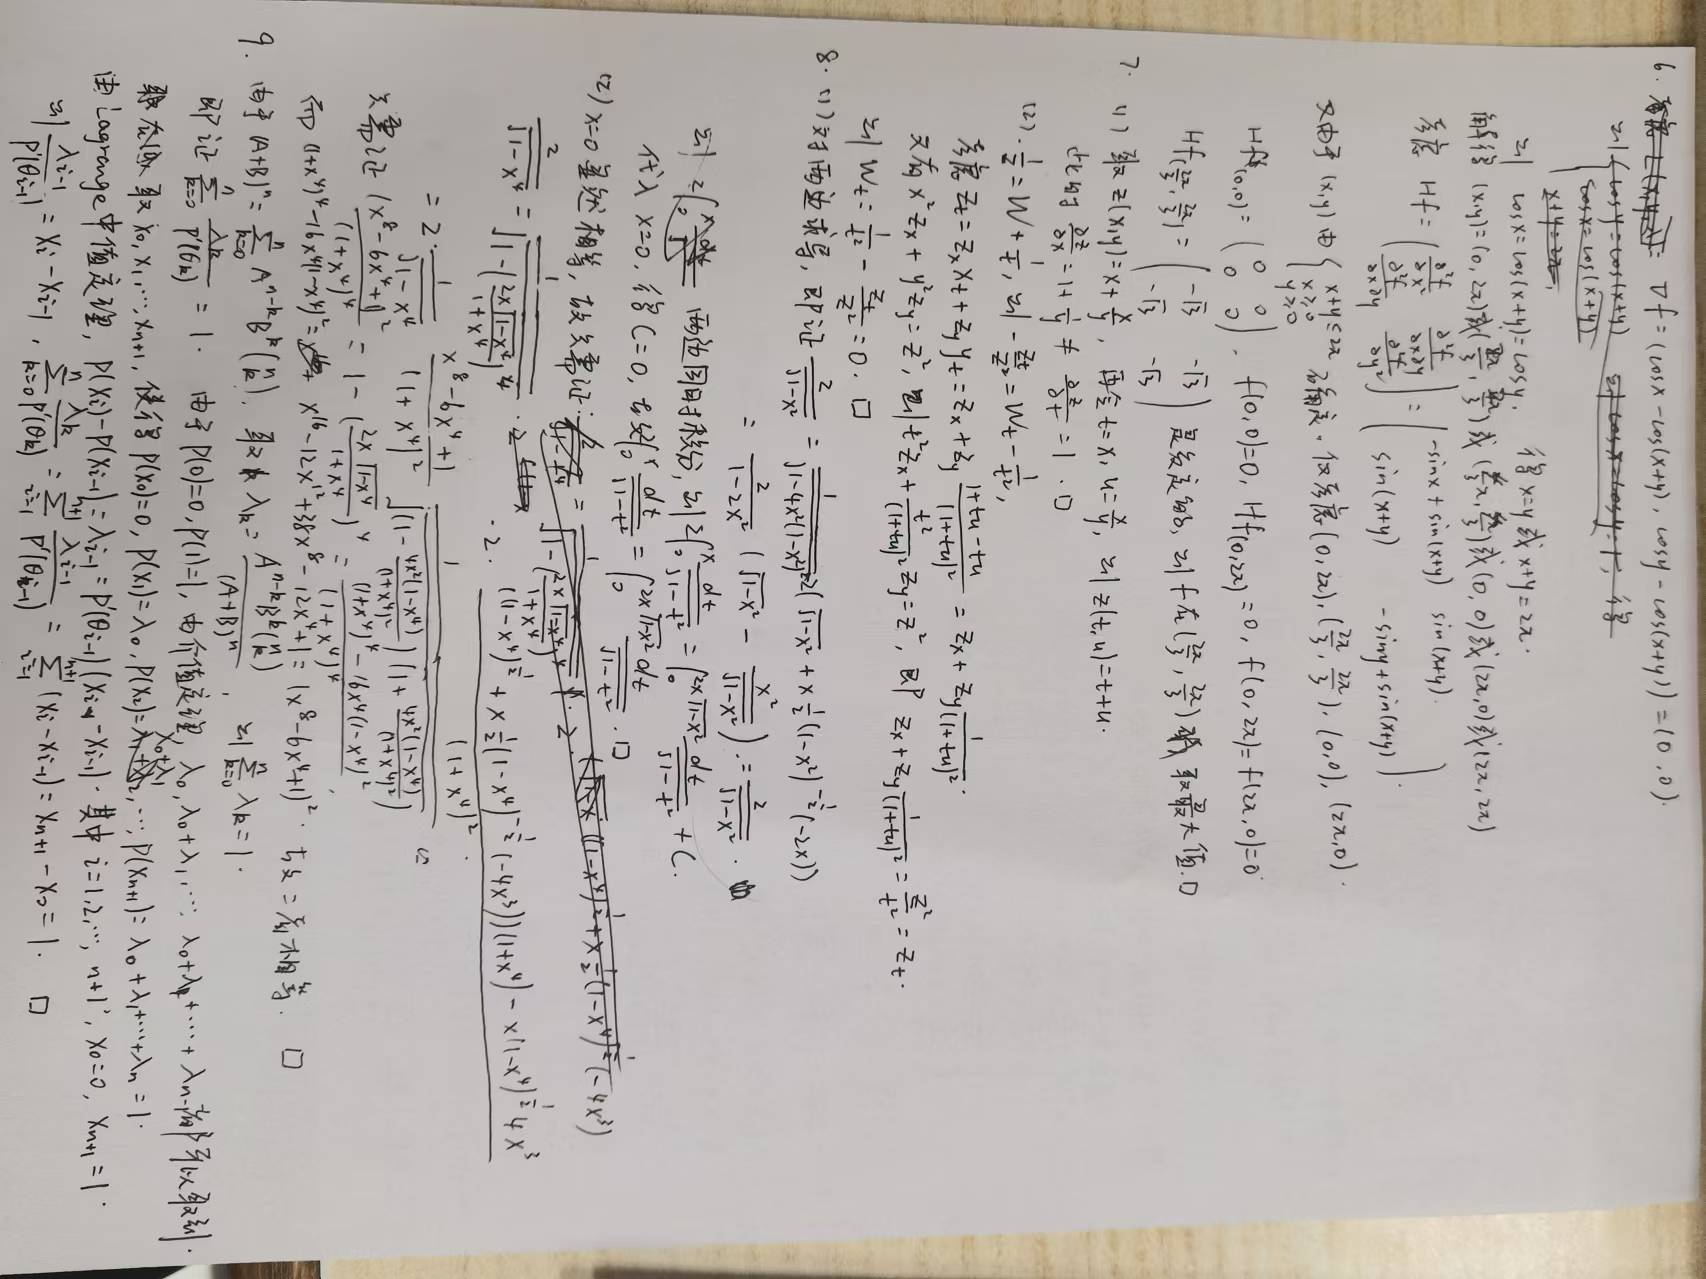 6. ∇f = (cosx - cos(x+y), cosy - cos(x+y)) = (0, 0).
则 cosx = cos(x+y) = cosy, 得 x=y 或 x+y=2π.
解得 (x,y) = (0, 2π) 或 (2π/3, 2π/3) 或 (4/3π, 4/3π) 或 (0, 0) 或 (2π, 0) 或 (2π, 2π)
考虑 Hf = (∂²f/∂x² ∂²f/∂x∂y; ∂²f/∂x∂y ∂²f/∂y²) = (-sinx + sin(x+y) sin(x+y); sin(x+y) -siny + sin(x+y)).
又由于 (x,y) 由 { x+y≤2π, x≥0, y≥0 确定. 仅考虑 (0, 2π), (2π/3, 2π/3), (0,0), (2π,0).
Hf(0,0) = (0 0; 0 0). f(0,0)=0, Hf(0,2π) = 0, f(0,2π) = f(2π,0) = 0
Hf(2π/3, 2π/3) = (-√3 -√3; -√3 -√3) 是负定的, 则 f 在 (2π/3, 2π/3) 取最大值. □
7. (1) 取 z(x,y) = x + x/y, 再令 t=x, u=x/y, 则 z(t,u) = t+u.
此时 ∂z/∂x = 1 + 1/y ≠ ∂z/∂t = 1. □
(2). 1/z = W + 1/t, 则 -z_t/z² = W_t - 1/t²,
考虑 z_t = z_x x_t + z_y y_t = z_x + z_y (1+tu-tu)/(1+tu)² = z_x + z_y 1/(1+tu)².
又有 x²z_x + y²z_y = z², 则 t²z_x + t²/(1+tu)² z_y = z², 即 z_x + z_y 1/(1+tu)² = z²/t² = z_t.
则 W_t = 1/t² - z_t/z² = 0. □
8. (1) 对两边求导, 即证 2/√(1-x²) = 1/√(1-4x²(1-x²)) · 2(√(1-x²) + x ½(1-x²)^(-½)(-2x))
= 2/(1-2x²) (√(1-x²) - x²/√(1-x²)) = 2/√(1-x²).
则 两边同时积分, 则 2∫₀^x dt/√(1-t²) = ∫₀^(2x√(1-x²)) dt/√(1-t²) + C.
代入 x=0, 得 C=0, 故 2∫₀^x dt/√(1-t²) = ∫₀^(2x√(1-x²)) dt/√(1-t²). □
(2) x=0 显然相等, 故只需证:
2/√(1-x⁴) = 1/√(1-(2x√(1-x⁴)/(1+x⁴))⁴) · 2 · (((1-x⁴)^½ + x ½(1-x⁴)^(-½)(-4x³))(1+x⁴) - x(1-x⁴)^½ 4x³)/(1+x⁴)².
= 2 · 1/√(1-x⁴) (x⁸-6x⁴+1)/(1+x⁴)² 1/√((1 - 4x²(1-x⁴)/(1+x⁴)²)(1 + 4x²(1-x⁴)/(1+x⁴)²))
只需证 (x⁸-6x⁴+1)²/(1+x⁴)⁴ = 1 - (2x√(1-x⁴)/(1+x⁴))⁴ = ((1+x⁴)⁴ - 16x⁴(1-x⁴)²)/(1+x⁴)⁴,
而 (1+x⁴)⁴ - 16x⁴(1-x⁴)² = x¹⁶ - 12x¹² + 38x⁸ - 12x⁴ + 1 = (x⁸-6x⁴+1)². 故二者相等. □
9. 由于 (A+B)ⁿ = Σ_{k=0}^n A^{n-k}B^k (n k). 取 λ_k = A^{n-k}B^k (n k)/(A+B)ⁿ, 则 Σ_{k=0}^n λ_k = 1.
即证 Σ_{k=0}^n λ_k/P'(θ_k) = 1. 由于 P(0)=0, P(1)=1, 由介值定理, λ₀, λ₀+λ₁, ⋯, λ₀+λ₁+⋯+λ_n 都可以取到.
取 x₀, x₁, ⋯, x_{n+1}, 使得 P(x₀)=0, P(x₁)=λ₀, P(x₂)=λ₀+λ₁, ⋯, P(x_{n+1}) = λ₀+λ₁+⋯+λ_n = 1.
由 Lagrange 中值定理, P(x_i) - P(x_{i-1}) = λ_{i-1} = P'(θ_{i-1})(x_i - x_{i-1}). 其中 i=1,2,⋯, n+1, x₀=0, x_{n+1}=1.
则 λ_{i-1}/P'(θ_{i-1}) = x_i - x_{i-1}, Σ_{k=0}^n λ_k/P'(θ_k) = Σ_{i=1}^{n+1} λ_{i-1}/P'(θ_{i-1}) = Σ_{i=1}^{n+1} (x_i - x_{i-1}) = x_{n+1} - x₀ = 1. □